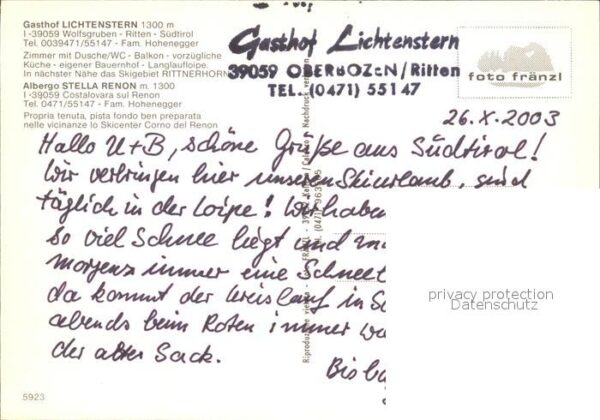 Gasthof LICHTENSTERN 1300 m
I -39059 Wolfsgruben - Ritten - Südtirol
Tel. 0039471/55147 - Fam. Hohenegger
Zimmer mit Dusche/WC - Balkon - vorzügliche
Küche - eigener Bauernhof - Langlaufloipe.
In nächster Nähe das Skigebiet RITTNERHORN
Albergo STELLA RENON m. 1300
I -39059 Costalovara sul Renon
Tel. 0471/55147 - Fam. Hohenegger
Propria tenuta, pista fondo ben preparata
nelle vicinanze lo Skicenter Corno del Renon
Gasthof Lichtenstern
39059 OBERBOZEN/Ritten
TEL. (0471) 55147
foto fränzl
26.X.2003
Hallo U+B, schöne Grüße aus Südtirol!
Wir verbringen hier unseren Skiurlaub, sind
täglich in der Loipe! Wir habe
so viel Schnee liegt und
morgens immer eine
da kommt der Kreislauf in
abends beim Roten immer
der alter Sack.
Bis
privacy protection
Datenschutz
5923